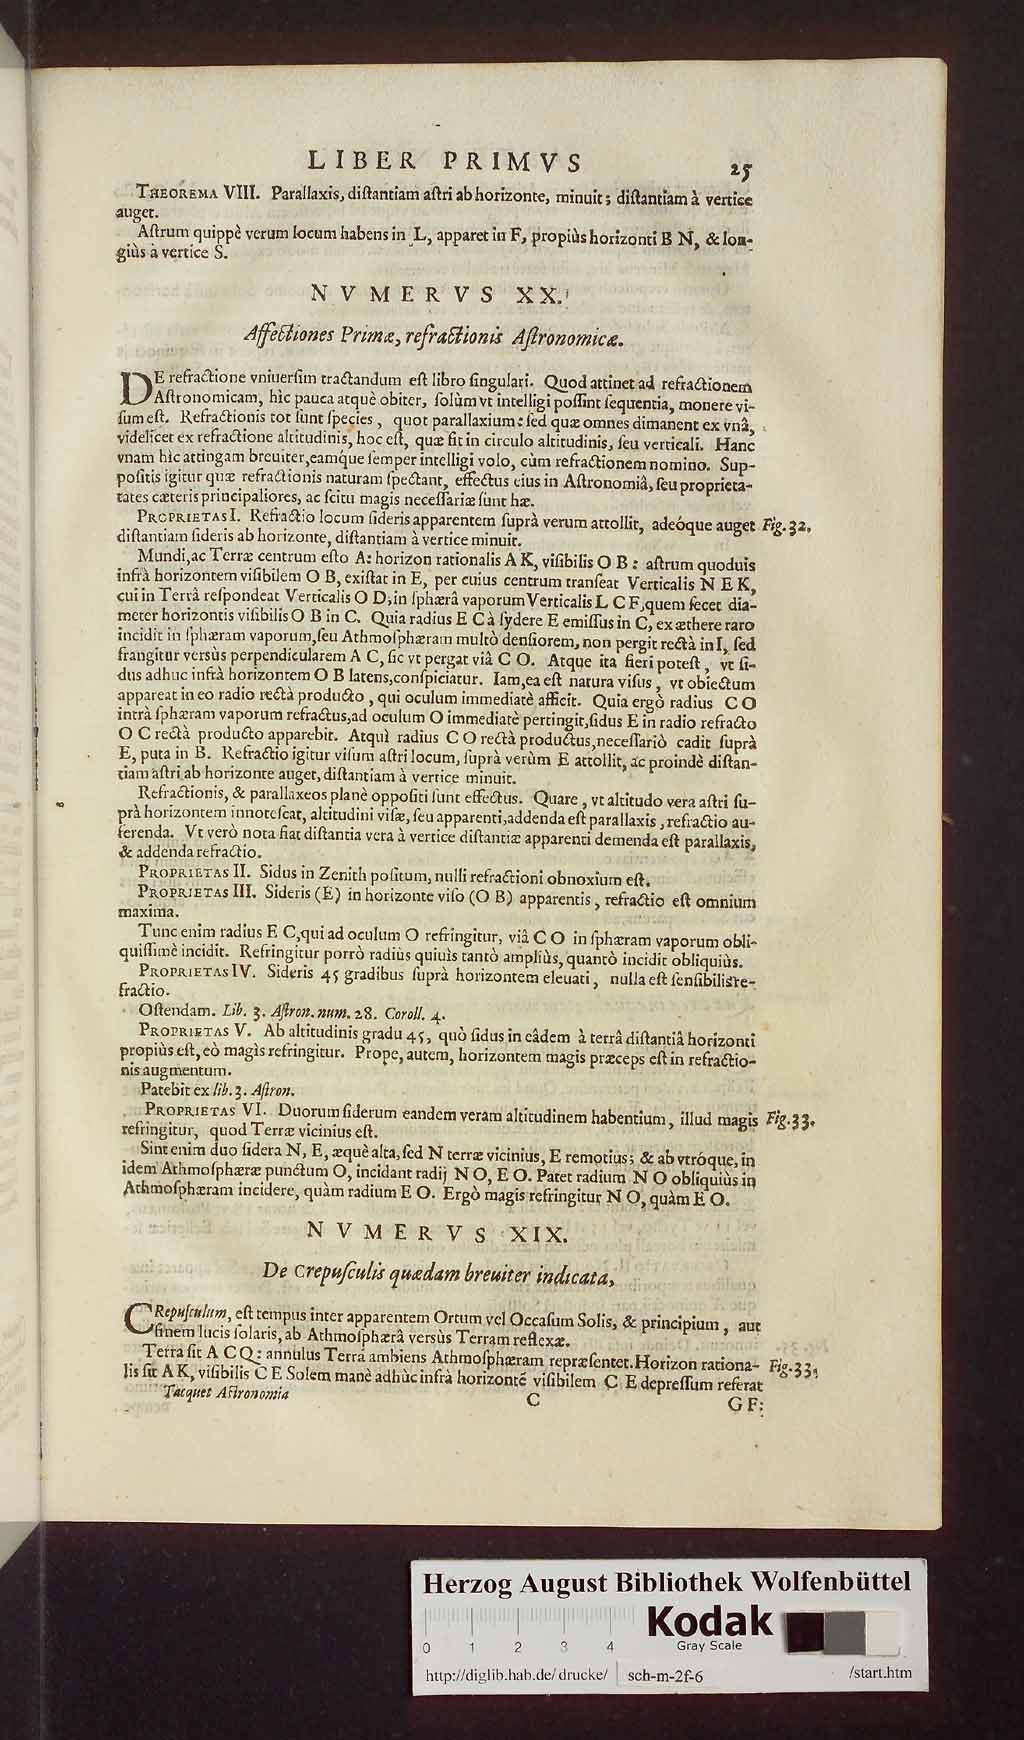 LIBER PRIMVS 25
THEOREMA VIII. Parallaxis, diſtantiam aſtri ab horizonte, minuit; diſtantiam à vertice
auget.
Aſtrum quippè verum locum habens in L, apparet in F, propiùs horizonti B N, & lon-
giùs à vertice S.
NVMERVS XX.
Affectiones Primæ, refractionis Aſtronomicæ.
DE refractione vniuerſim tractandum eſt libro ſingulari. Quod attinet ad refractionem
Aſtronomicam, hic pauca atquè obiter, ſolùm vt intelligi poſſint ſequentia, monere vi-
ſum eſt. Refractionis tot ſunt ſpecies, quot parallaxium: ſed quæ omnes dimanent ex vnâ,
videlicet ex refractione altitudinis, hoc eſt, quæ fit in circulo altitudinis, ſeu verticali. Hanc
vnam hìc attingam breuiter, eamq́ue ſemper intelligi volo, cùm refractionem nomino. Sup-
poſitis igitur quæ refractionis naturam ſpectant, effectus eius in Aſtronomiâ, ſeu proprieta-
tates cæteris principaliores, ac ſcitu magis neceſſariæ ſunt hæ.
PROPRIETAS I. Refractio locum ſideris apparentem ſuprà verum attollit, adeóque auget Fig. 32.
diſtantiam ſideris ab horizonte, diſtantiam à vertice minuit.
Mundi, ac Terræ centrum eſto A: horizon rationalis A K, viſibilis O B: aſtrum quoduis
infrà horizontem viſibilem O B, exiſtat in E, per cuius centrum tranſeat Verticalis N E K,
cui in Terrâ reſpondeat Verticalis O D, in ſphærâ vaporum Verticalis L C F, quem ſecet dia-
meter horizontis viſibilis O B in C. Quia radius E C à ſydere E emiſſus in C, ex æthere raro
incidit in ſphæram vaporum, ſeu Athmoſphæram multò denſiorem, non pergit rectà in I, ſed
frangitur versùs perpendicularem A C, ſic vt pergat viâ C O. Atque ita fieri poteſt, vt ſi-
dus adhuc infrà horizontem O B latens, conſpiciatur. Iam, ea eſt natura viſus, vt obiectum
appareat in eo radio rectà producto, qui oculum immediatè afficit. Quia ergò radius C O
intrà ſphæram vaporum refractus, ad oculum O immediatè pertingit, ſidus E in radio refracto
O C rectà producto apparebit. Atquì radius C O rectà productus, neceſſariò cadit ſuprà
E, puta in B. Refractio igitur viſum aſtri locum, ſuprà verùm E attollit, ac proindè diſtan-
tiam aſtri ab horizonte auget, diſtantiam à vertice minuit.
Refractionis, & parallaxeos planè oppoſiti ſunt effectus. Quare, vt altitudo vera aſtri ſu-
prà horizontem innoteſcat, altitudini viſæ, ſeu apparenti, addenda eſt parallaxis, refractio au-
ferenda. Vt verò nota fiat diſtantia vera à vertice diſtantiæ apparenti demenda eſt parallaxis,
& addenda refractio.
PROPRIETAS II. Sidus in Zenith poſitum, nulli refractioni obnoxium eſt.
PROPRIETAS III. Sideris (E) in horizonte viſo (O B) apparentis, refractio eſt omnium
maxima.
Tunc enim radius E C, qui ad oculum O refringitur, viâ C O in ſphæram vaporum obli-
quiſſimè incidit. Refringitur porrò radius quiuis tantò ampliùs, quantò incidit obliquiùs.
PROPRIETAS IV. Sideris 45 gradibus ſuprà horizontem eleuati, nulla eſt ſenſibilis re-
fractio.
Oſtendam. Lib. 3. Aſtron. num. 28. Coroll. 4.
PROPRIETAS V. Ab altitudinis gradu 45, quò ſidus in eâdem à terrâ diſtantiâ horizonti
propiùs eſt, eò magìs refringitur. Prope, autem, horizontem magis præceps eſt in refractio-
nis augmentum.
Patebit ex lib. 3. Aſtron.
PROPRIETAS VI. Duorum ſiderum eandem veram altitudinem habentium, illud magis Fig. 33.
refringitur, quod Terræ vicinius eſt.
Sint enim duo ſidera N, E, æquè alta, ſed N terræ vicinius, E remotius; & ab vtróque, in
idem Athmoſphæræ punctum O, incidant radij N O, E O. Patet radium N O obliquiùs in
Athmoſphæram incidere, quàm radium E O. Ergò magis refringitur N O, quàm E O.
NVMERVS XIX.
De Crepuſculis quædam breuiter indicata,
CRepuſculum, eſt tempus inter apparentem Ortum vel Occaſum Solis, & principium, aut
finem lucis ſolaris, ab Athmoſphærâ versùs Terram reflexæ.
Terra ſit A C Q: annulus Terrã ambiens Athmoſphæram repræſentet. Horizon rationa- Fig. 33.
lis ſit A K, viſibilis C E Solem manè adhùc infrà horizontẽ viſibilem C E depreſſum referat
Tacquet Aſtronomia C G F:
Herzog August Bibliothek Wolfenbüttel
0 1 2 3 4
Kodak
Gray Scale
http://diglib.hab.de/drucke/ sch-m-2f-6 /start.htm